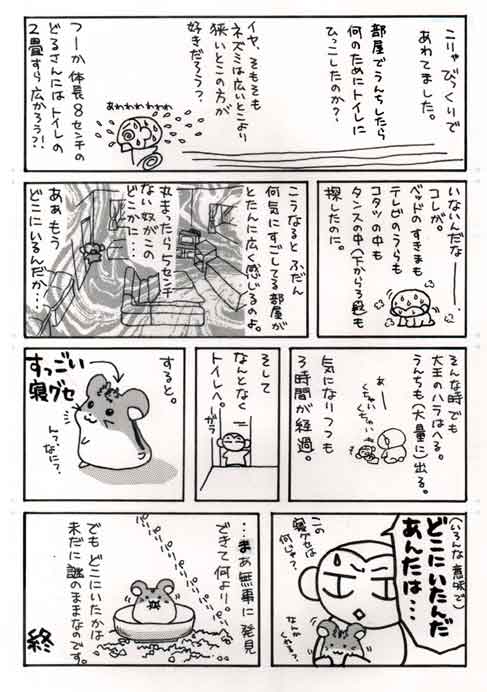 こりゃびっくりで
あわてました。
部屋でうんちしたら
何のためにトイレに
ひっこしたのか?
イヤ、そもそも
ネズミは広いとこより
狭いとこの方が
好きだろう?
あわわわわわわ
つーか体長8センチの
どるさんにはトイレの
2畳すら広かろう?!
いないんだなーー、
コレが。
ベッドのすきまも
テレビのうらも
コタツの中も
タンスの中(下から3段)も
探したのに。
こうなると ふだん
何気にすごしてる部屋が
とたんに広く感じるのよ。
丸まったら5センチ
ない奴がこの
どこかに…
ああもう
どこにいるんだか…
そんな時でも
大王のハラはへる。
うんちも(大量に)出る。
あー
くちゃい
くちゃい
気になりつつも
3時間が経過。
そして
なんとなく
トイレへ。
ガラ
すると。
すっごい
寝グセ
んっ?なに?
(いろんな意味で)
どこにいたんだ
あんたは…
この
寝グセは
何じゃ?
なんか
…まあ無事に発見
できて何より。
でも どこにいたかは
未だに謎のままなのです。
終